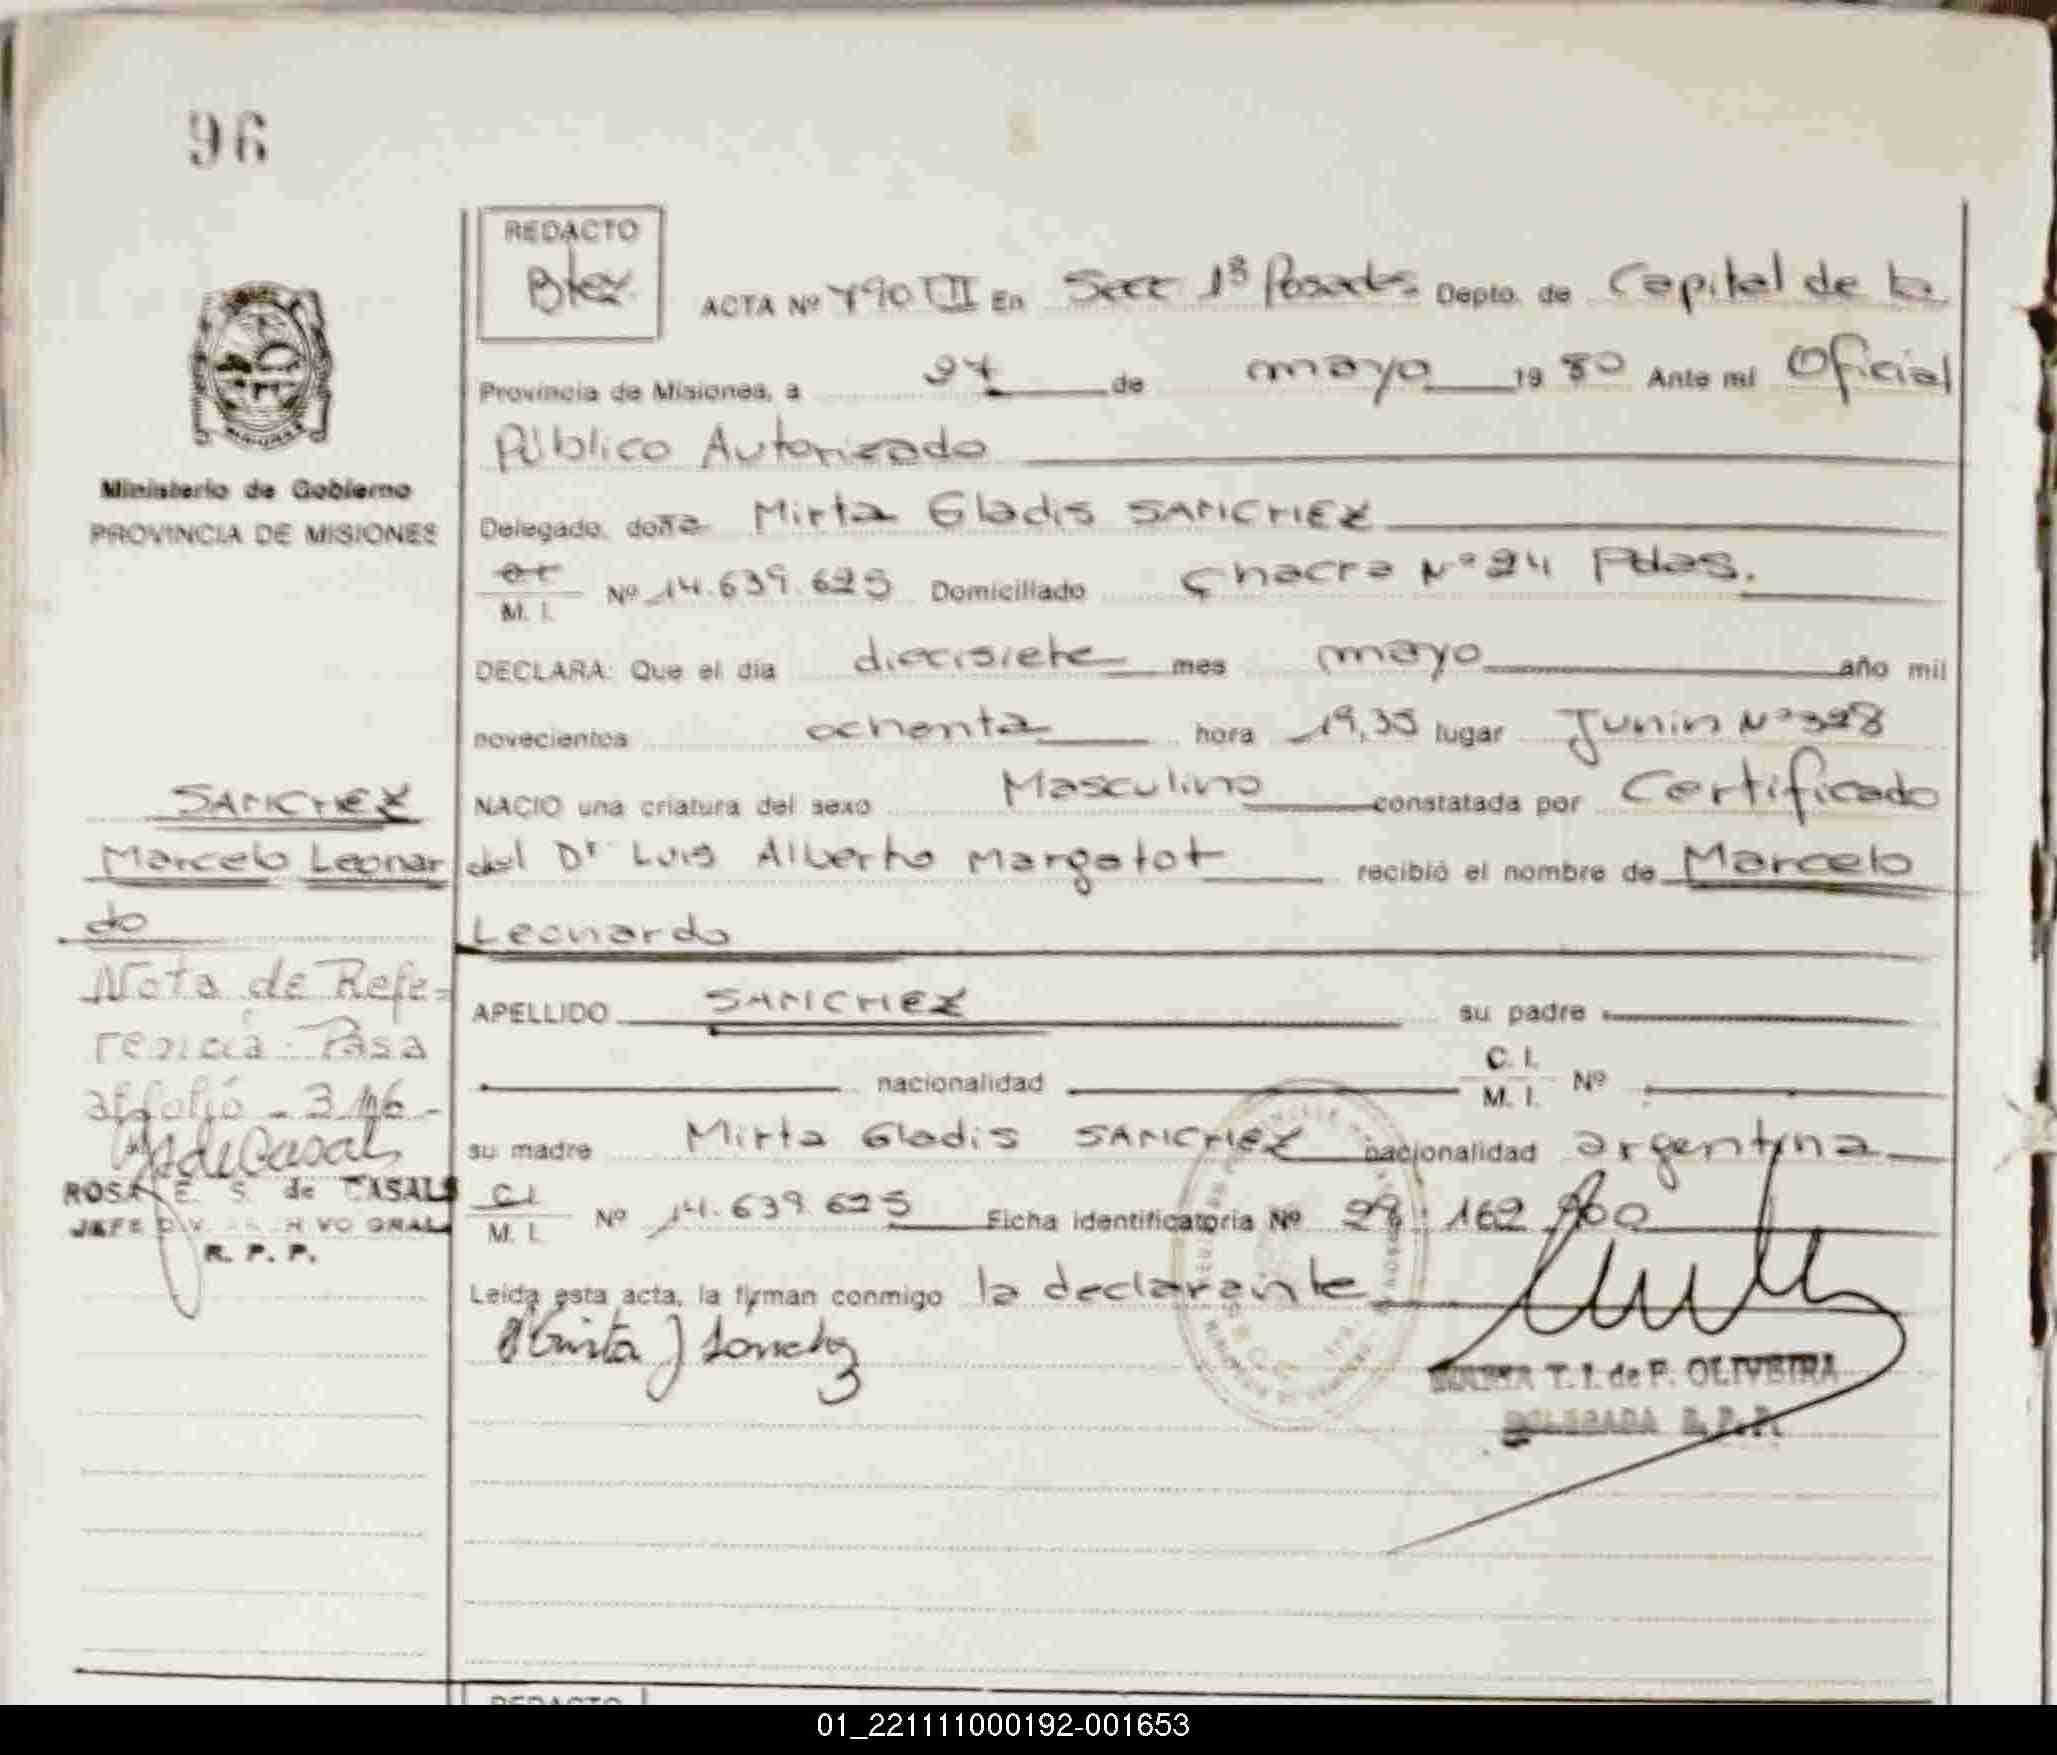 96
REDACTO
ACTA Nº 790 III En Secc 1ª Posadas Depto. de Capital de la
Provincia de Misiones, a 27 de mayo 1980 Ante mi Oficial
Público Autorizado
Ministerio de Gobierno
PROVINCIA DE MISIONES
Delegado, doña Mirta Gladis SANCHEZ
M. I. Nº 14.639.625 Domiciliado Chacra Nº 24 Pdas.
DECLARA: Que el dia diecisiete mes mayo año mil
novecientos ochenta hora 19,35 lugar Junin Nº 328
NACIO una criatura del sexo Masculino constatada por Certificado
del Dr Luis Alberto Margatot recibió el nombre de Marcelo
Leonardo
SANCHEZ
Marcelo Leonar
do
Nota de Refe-
rencia Pasa
al folio - 346 -
ROSA E. S. de CASALS
JEFE DIV. GRAL.
R. P. P.
APELLIDO SANCHEZ su padre
nacionalidad C. I. M. I. Nº
su madre Mirta Gladis SANCHEZ nacionalidad argentina
C. I. M. I. Nº 14.639.625 Ficha identificatoria Nº 28.162.960
Leida esta acta, la firman conmigo la declarante
T. I. de F. OLIVEIRA
DELEGADA R. P. P.
REDACTO
01_221111000192-001653